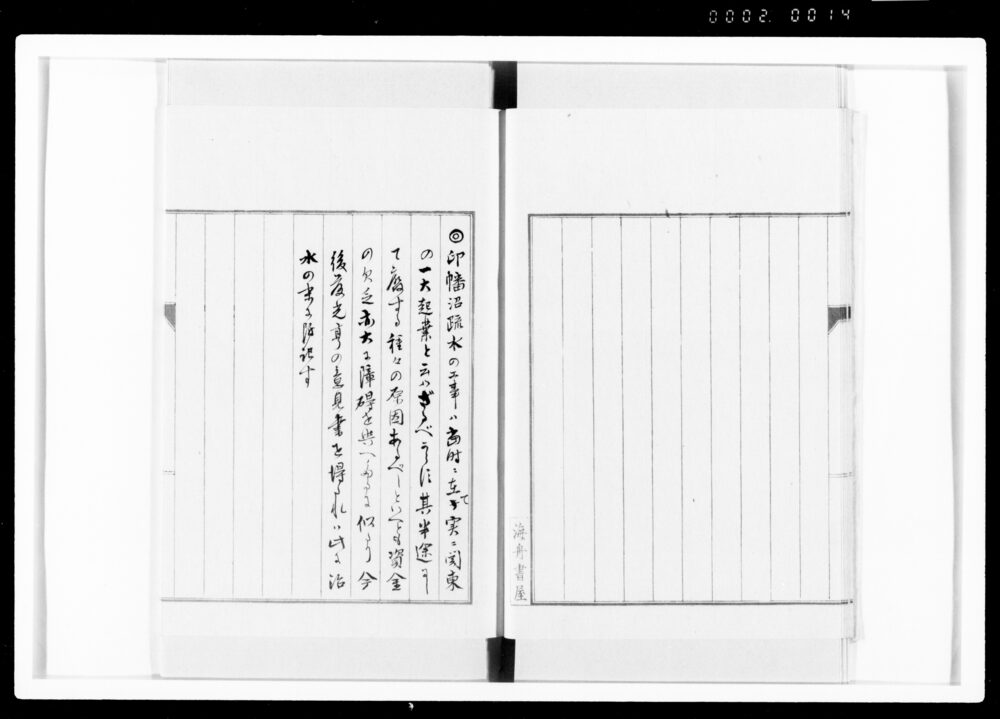 0002 0014
海舟書屋
◎印幡沼疏水の工事ハ当時ニ在て実ニ関東
の一大起業と云ハざるべからす其半途にし
て廃する種々の原因あるべしといへとも資金
の欠乏亦大に障碍を与へたるに似たり今
後藤光亨の意見書を得たれハ此に治
水の末に附記す